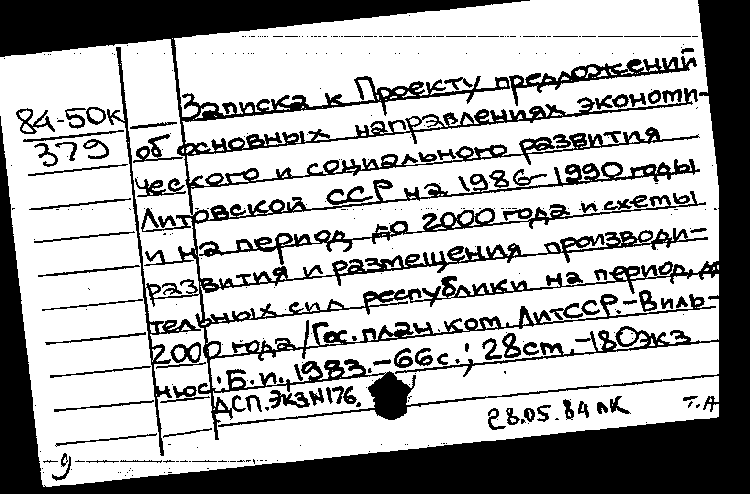 84-50к
379
Записка к Проекту предложений
об основных направлениях экономи-
ческого и социального развития
Литовской ССР на 1986-1990 годы
и на период до 2000 года и схемы
развития и размещения производи-
тельных сил республики на период до
2000 года /Гос. план. ком. ЛитССР.-Виль-
нюс: Б.и., 1983.-66с.; 28см.-180экз
ДСП. Экз N176.
28.05.84 лк
Т.А
9